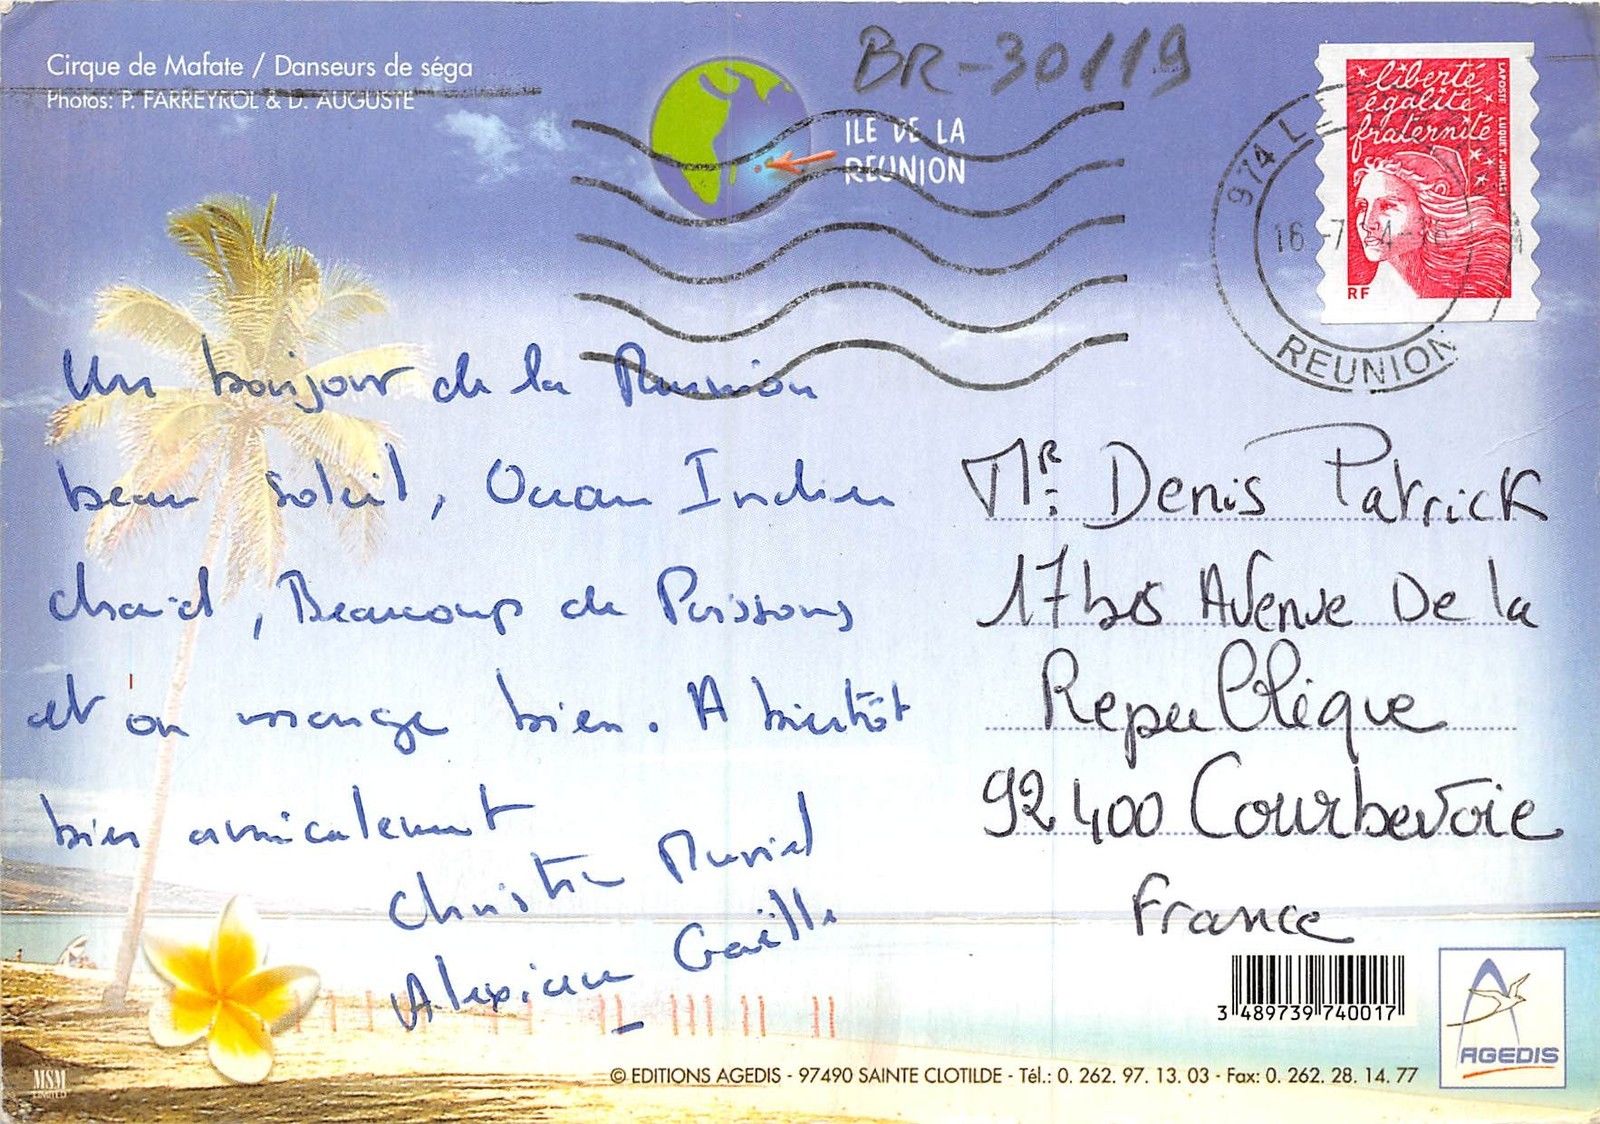 Cirque de Mafate / Danseurs de séga
Photos: P. FARREYROL & D. AUGUSTE
BR-30119
ILE DE LA
REUNION
liberté
égalité
fraternité
LA POSTE LUQUET.JUMELET
RF
974 L
16 7
REUNION
Un bonjour de la Réunion
beau soleil, Ocean Indien
chaud, Beaucoup de Poissons
et on mange bien. A bientôt
bien amicalement
Christine Muriel
Gaëlle
Mr. Denis Patrick
17 bis Avenue De la
Republique
92400 Courbevoie
France
3 489739 740017
AGEDIS
MSM
LIMITED
© EDITIONS AGEDIS - 97490 SAINTE CLOTILDE - Tél.: 0. 262. 97. 13. 03 - Fax: 0. 262. 28. 14. 77